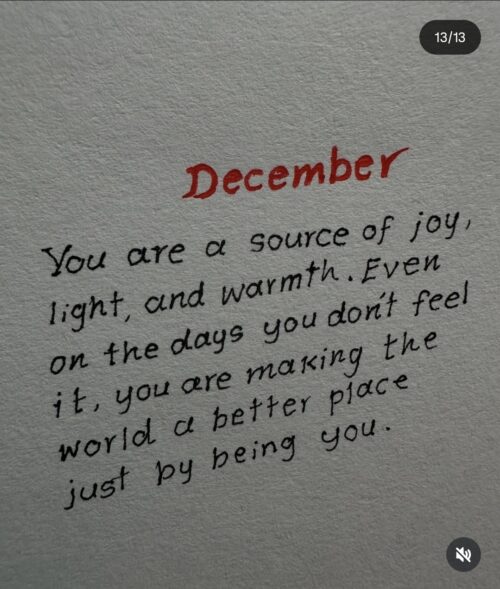 13/13
December
You are a source of joy,
light, and warmth. Even
on the days you don't feel
it, you are making the
world a better place
just by being you.